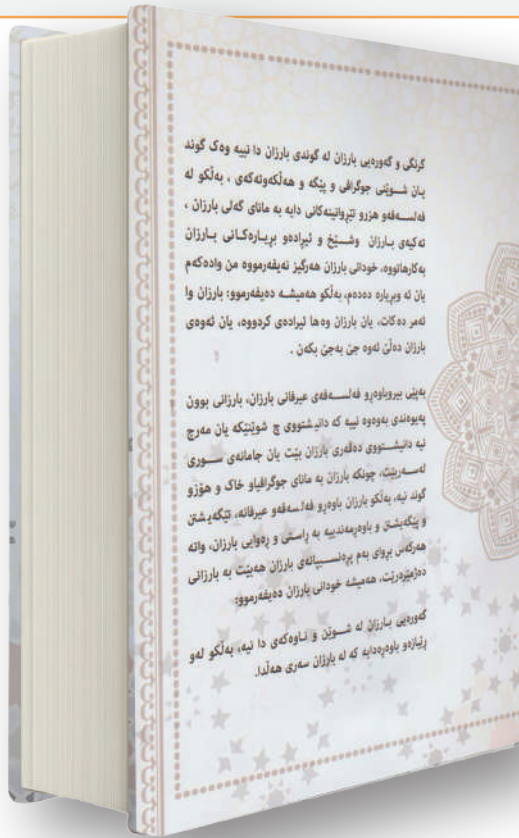 گرنگی و گەورەیی بارزان لە گوندی بارزان دا نییە وەک گوند
یان شــوێنی جوگرافی و پێگە و هەڵکەوتەکەی ، بەڵکو لە
فەلســەفەو هزرو تێڕوانینەکانی دایە بە مانای گەلی بارزان ،
تەکیەی بـارزان وشــێخ و ئیرادەو بڕیـارەکـانی بـارزان
بەکارهاتووە، خودانی بارزان هەرگیز نەیفەرمووە من وادەکەم
یان ئە وبڕیارە دەدەم، بەڵکو هەمیشـە دەیفەرموو: بارزان وا
ئەمر دە کات، یان بارزان وە ها ئیرادەی کردووە، یان ئەوەی
بارزان دەڵێ ئەوە جێ بەجێ بکەن .
بەپێی بیروباوەڕو فەلســەفەی عیرفانی بارزان، بارزانی بوون
پەیوەندی بەوەوە نییە کە دانیشتووی چ شوێنێکە یان مەرج
نیە دانیشــتووی دەڤەری بارزان بێت یان جامانەی ســوری
لەســەربێت، چونکە بارزان بە مانای جوگرافیاو خاک و هۆزو
گوند نیە، بەڵکو بارزان باوەڕو فەلسەفەو عیرفانە، تێگەیشتن
و پێگەیشتن و باوەڕمەندییە بە ڕاستی و ڕەوایی بارزان، واتە
هەرکەس بڕوای بەم پرەنســیپانەی بارزان هەبێت بە بارزانی
دەژمێردرێت، هەمیشە خودانی بارزان دەیفەرموو:
گەورەیی بـارزان لە شــوێن و نـاوەکەی دا نیە، بەڵکو لەو
ڕێبازەو باوەڕەدایە کە لە بارزان سەری هەڵدا.